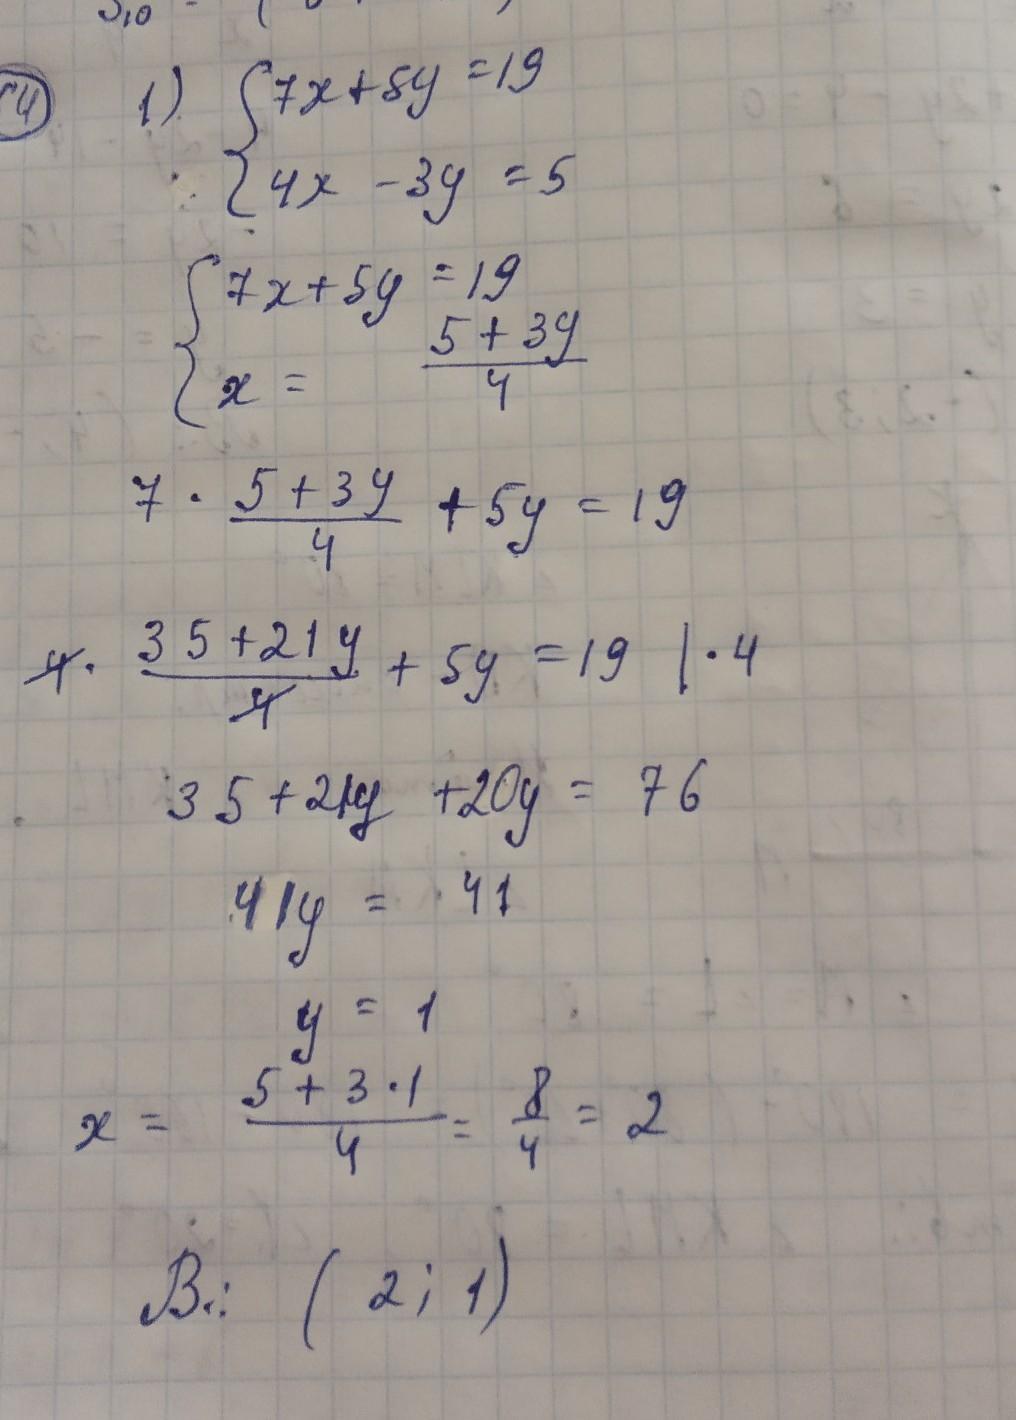 1) { 7x + 5y = 19
4x - 3y = 5
{ 7x + 5y = 19
x = \frac{5 + 3y}{4}
7 · \frac{5 + 3y}{4} + 5y = 19
4 · \frac{35 + 21y}{4} + 5y = 19 | · 4
35 + 21y + 20y = 76
41y = 41
y = 1
x = \frac{5 + 3 · 1}{4} = \frac{8}{4} = 2
В.: (2; 1)